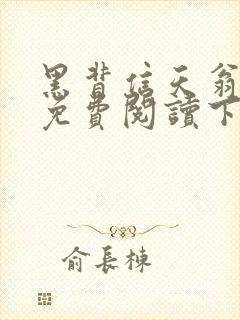 黑背信天翁
免費閱讀下
俞長棟